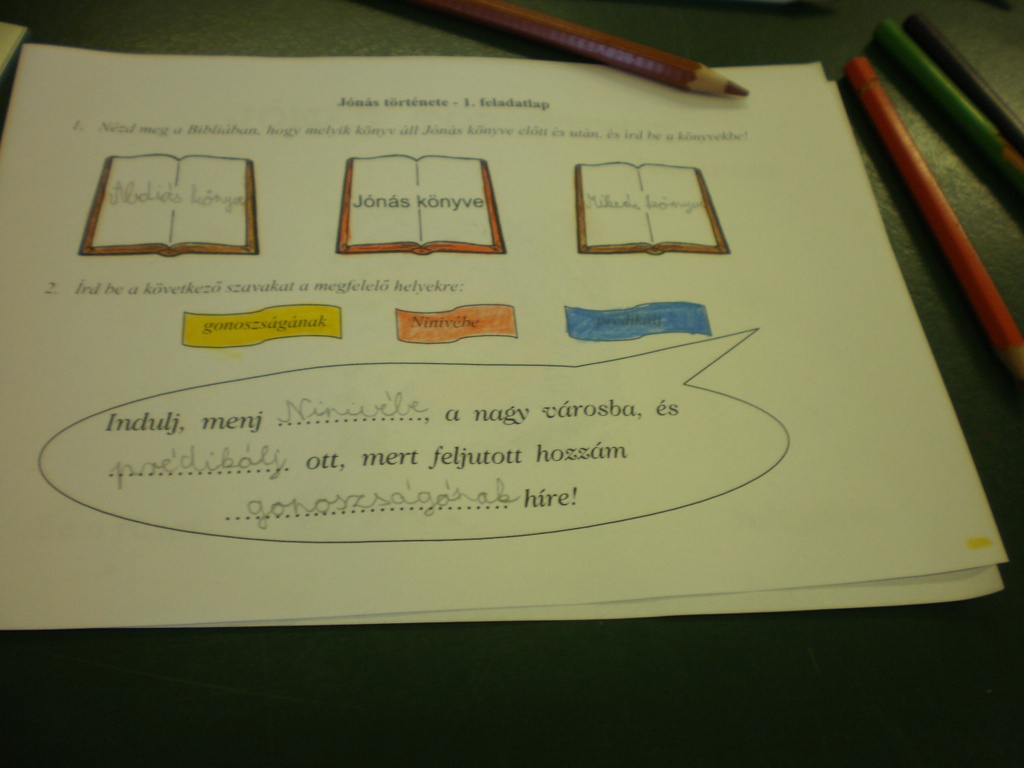 Jónás története - 1. feladatlap
1. Nézd meg a Bibliában, hogy melyik könyv áll Jónás könyve előtt és után, és írd be a könyvekbe!
Abdiás könyve Jónás könyve Mikeás könyve
2. Írd be a következő szavakat a megfelelő helyekre:
gonoszságának Ninivébe prédikálj
Indulj, menj Ninivébe, a nagy városba, és
prédikálj ott, mert feljutott hozzám
gonoszságának híre!